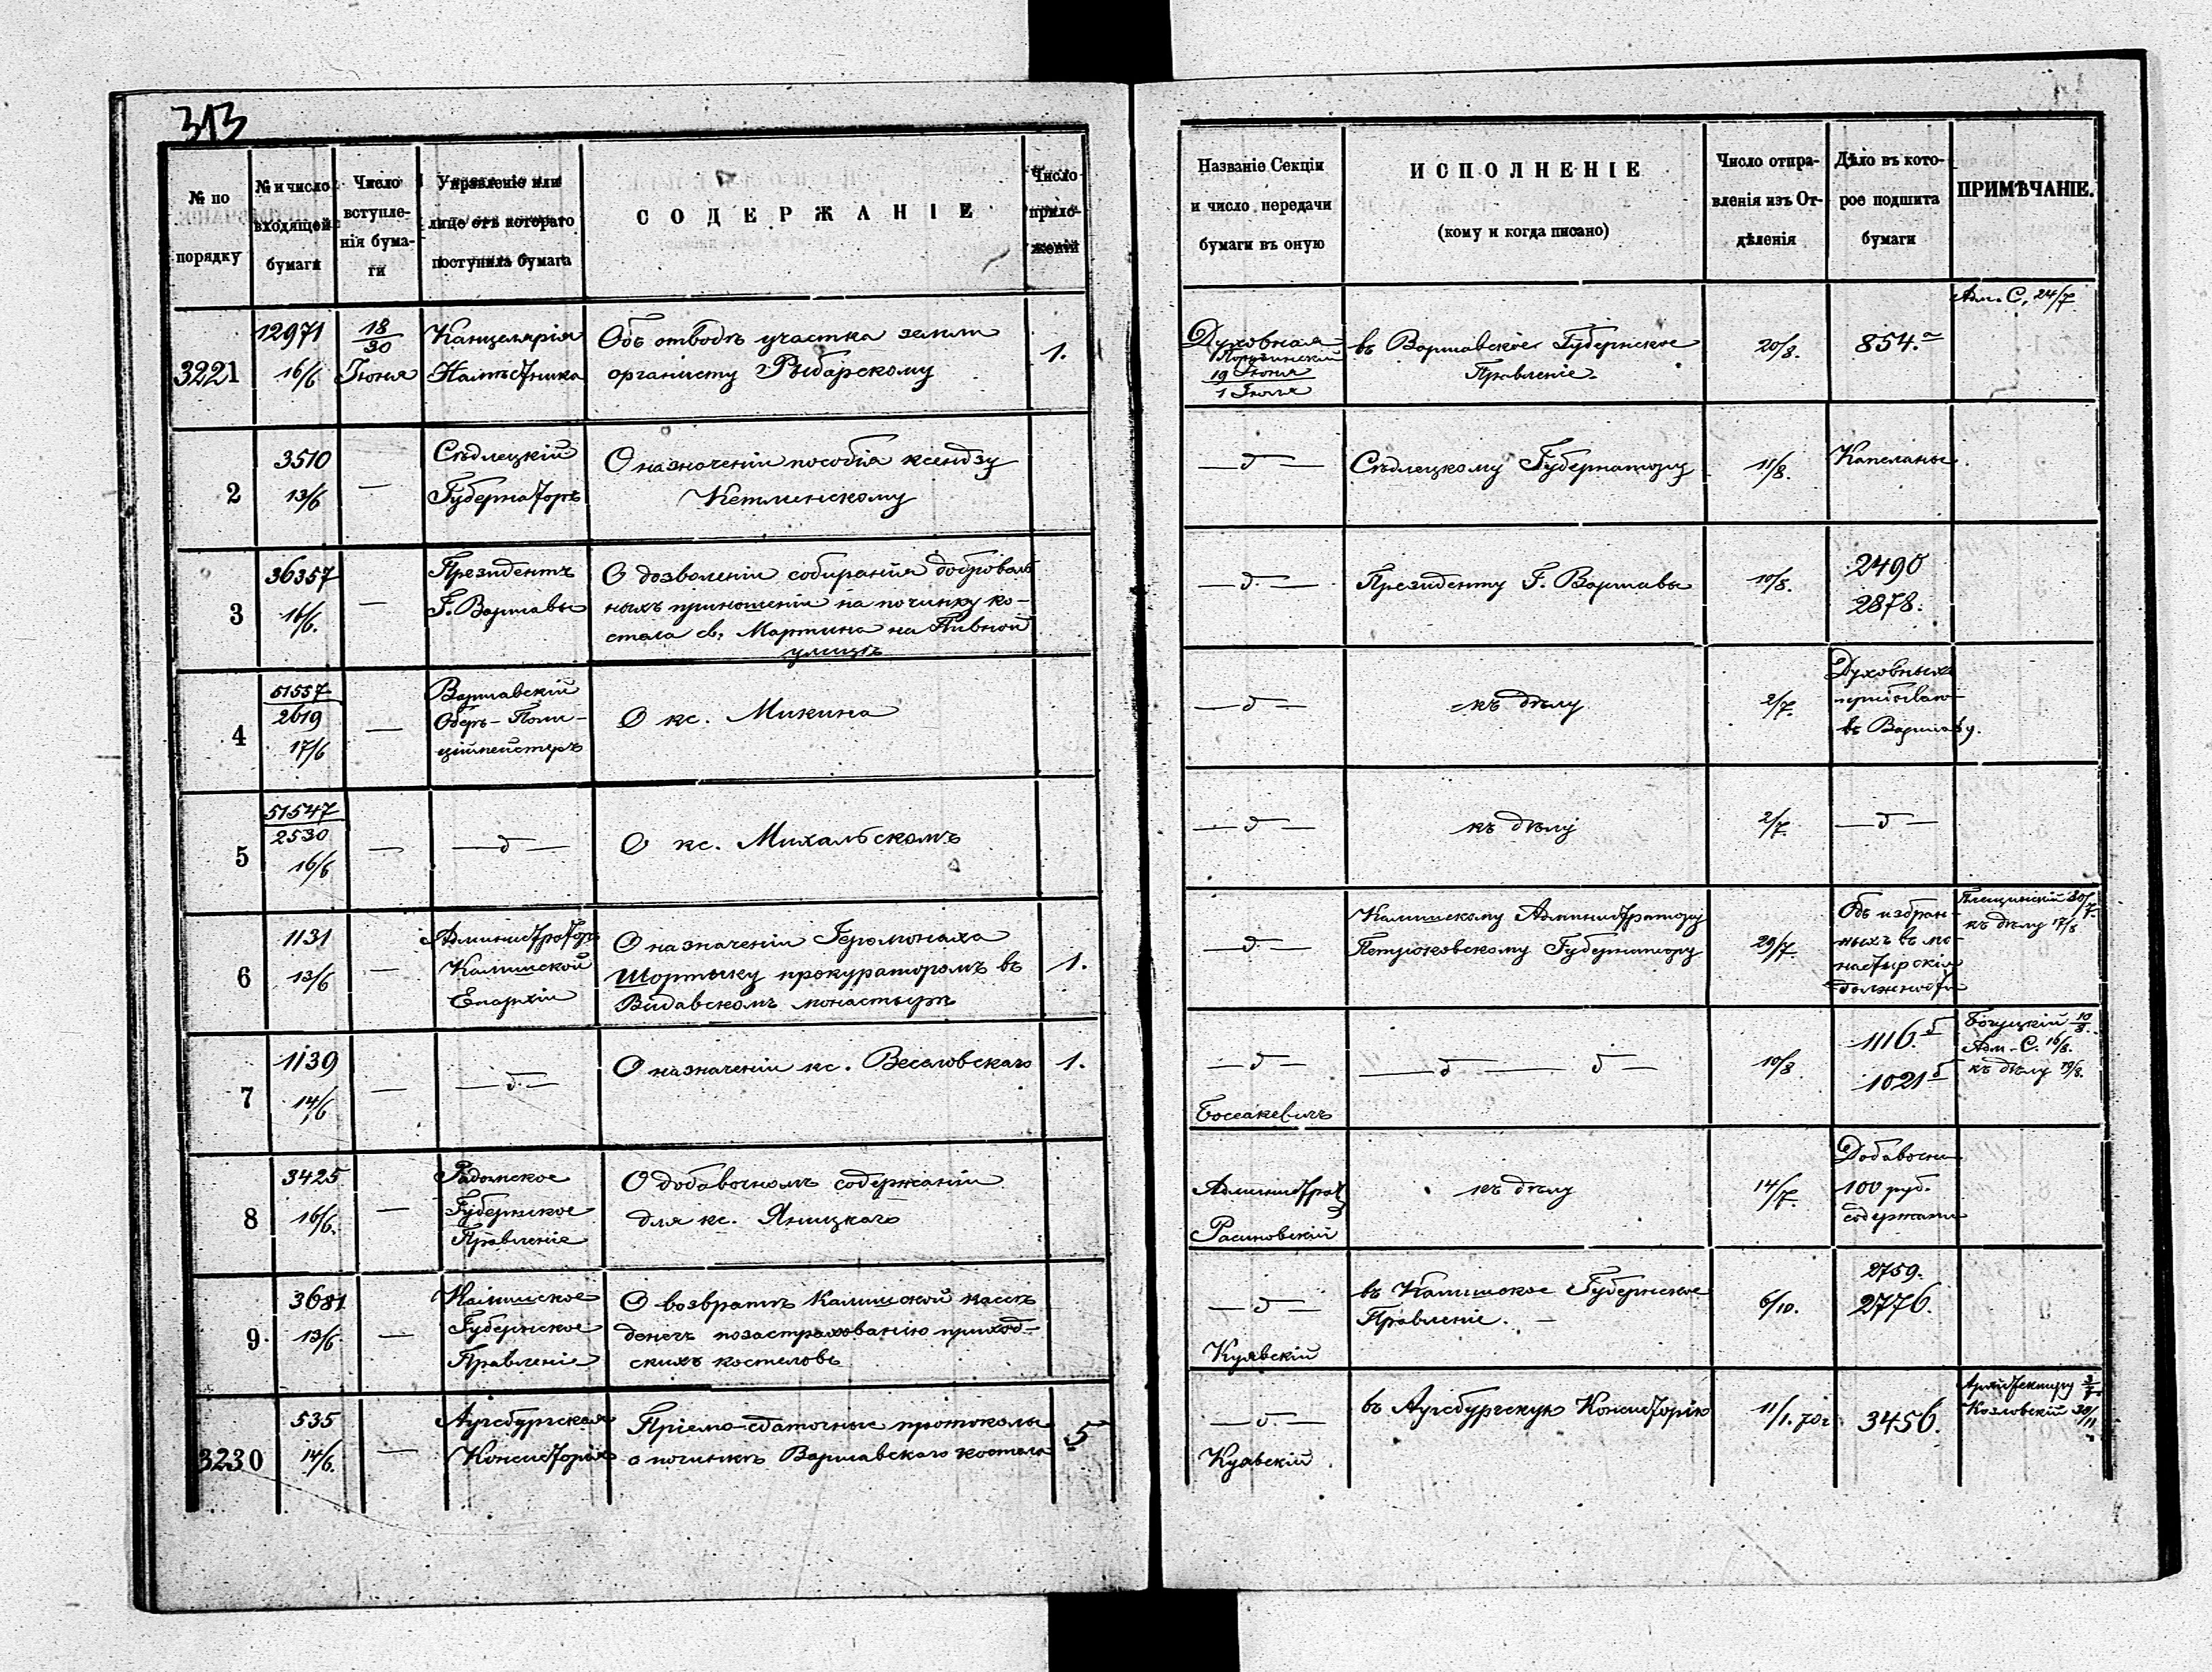 313
№ по
порядку
№ и число
входящей
бумаги
Число
вступле-
нія бума-
ги
Управленіе или
лице отъ котораго
поступила бумага
СОДЕРЖАНІЕ
Число
прило-
женій
Названіе Секціи
и число передачи
бумаги въ оную
ИСПОЛНЕНІЕ
(кому и когда писано)
Число отпра-
вленія изъ От-
дѣленія
Дѣло въ кото-
рое подшита
бумаги
ПРИМѢЧАНІЕ.
3221
12971
16/6
18/30
Іюня
Канцелярія
Намѣстника
Объ отводѣ участка земли
органисту Рыбарскому
1.
Духовная
19 Іюня
1 Іюля
въ Варшавское Губернское
Правленіе
20/8.
854.а
Адм. С. 24/7
2
3510
13/6
—
Сѣдлецкій
Губернаторъ
О назначеніи пособія ксендзу
Кетлинскому
— д —
Сѣдлецкому Губернатору
11/8.
Капеланы
3
36357
16/6.
—
Президентъ
Г. Варшавы
О дозволеніи собиранія доброволь
ныхъ приношеній на починку ко-
стела св. Мартина на Пивной
улицѣ
— д —
Президенту Г. Варшавы
10/8.
2490
2878.
4
51557
2619
17/6
—
Варшавскій
Оберъ-Поли-
ційместеръ
О кс. Микина
— д —
къ дѣлу
2/7.
Духовныхъ
прибываю-
въ Варшаву.
5
51547
2530
16/6
—
— д —
О кс. Михальскомъ
— д —
къ дѣлу
2/7.
— д —
6
1131
13/6
—
Администраторъ
Калишской
Епархіи
О назначеніи Іеромонаха
Шортыку прокураторомъ въ
Видавскомъ монастырѣ
1.
— д —
Калишскому Администратору
Петроковскому Губернатору
29/7.
Объ избран-
ныхъ въ мо-
настырскія
должности
къ дѣлу 17/8
7
1139
14/6
—
— д —
О назначеніи кс. Веселовскаго
1.
— д —
— д — д —
10/8
1116.б
1021б
Богуцкій 10/8.
Адм. С. 16/8.
къ дѣлу 19/8.
8
3425
16/6.
—
Радомское
Губернское
Правленіе
О добавочномъ содержаніи
для кс. Яницкаго
Администрат
къ дѣлу
14/7.
Добавочн
100 руб.
содержани
9
3681
13/6
—
Калишское
Губернское
Правленіе
О возвратѣ Калишской кассѣ
денегъ по застрахованію приход-
скихъ костеловъ
— д —
Куявскій
въ Калишское Губернское
Правленіе.
6/10.
2759.
2776.
3230
535
14/6.
—
Аугсбургская
Консисторія
Пріемо-сдаточные протоколы
о починкѣ Варшавскаго костела
5
— д —
Куявскій
въ Аугсбургскую Консисторію
11/1. 70г
3456.
Архитектору 3/7.
Козловскій 30/11